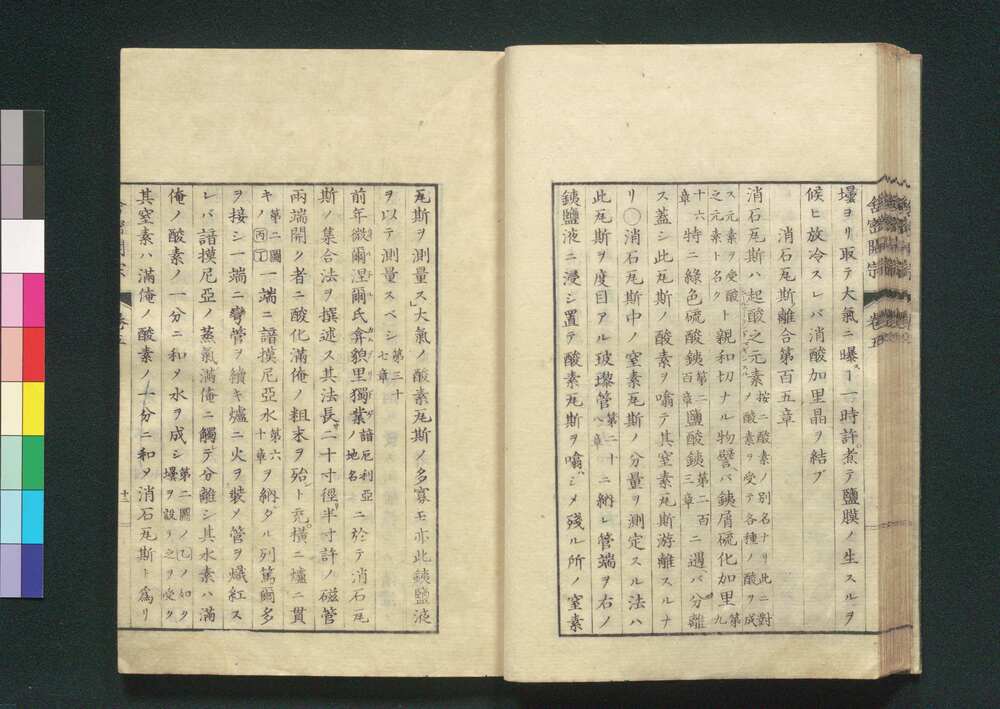 壜ヨリ取テ大氣ニ曝スー一時許煮テ鹽膜ノ生スルヲ
候ヒ放冷スレバ消酸加里晶ヲ結ブ
消石瓦斯離合第百五章
消石瓦斯ハ起酸之元素按ニ酸素ノ別名ナリ此ニ對スル元素ヲ受酸之元素ト名クノ酸素ヲ受テ各種ノ酸ヲ成
ト親和切ナル物譬バ銕屑硫化加里第九
十六章特ニ綠色硫酸銕第二百章鹽酸銕第二百三章ニ遇バ分離
ス蓋シ此瓦斯ノ酸素ヲ噏テ其窒素瓦斯游離スルナ
リ〇消石瓦斯中ノ窒素瓦斯ノ分量ヲ測定スル法ハ
此瓦斯ヲ度目アル玻瓈管第二十章ニ納レ管端ヲ右ノ
銕鹽液ニ浸シ置テ酸素瓦斯ヲ噏シメ殘ル所ノ窒素
舍密開宗 卷五
瓦斯ヲ測量ス」大氣ノ酸素瓦斯ノ多寡モ亦此銕鹽液
ヲ以テ測量スベシ第三十七章
前年微爾涅爾氏弇貌里獨業ノ諳厄利亞ノ地名ニ於テ消石瓦
斯ノ集合法ヲ撰述ス其法長二十寸徑半寸許ノ磁管
兩端開ク者ニ酸化滿俺ノ粗末ヲ殆ト充橫ニ爐ニ貫
キ第二圖ノ丙丁一端ニ諳摸尼亞水第六十章ヲ納タル列篤爾多
ヲ接シ一端ニ彎管ヲ續キ爐ニ火ヲ裝メ管ヲ熾紅ス
レバ諳摸尼亞ノ蒸氣滿俺ニ觸テ分離シ其水素ハ滿
俺ノ酸素ノ一分ニ和メ水ヲ成シ第二圖ノ乙ノ如ク壜ヲ設テ之ヲ受ク
其窒素ハ滿俺ノ酸素ノ一分ニ和メ消石瓦斯ト爲リ
十一